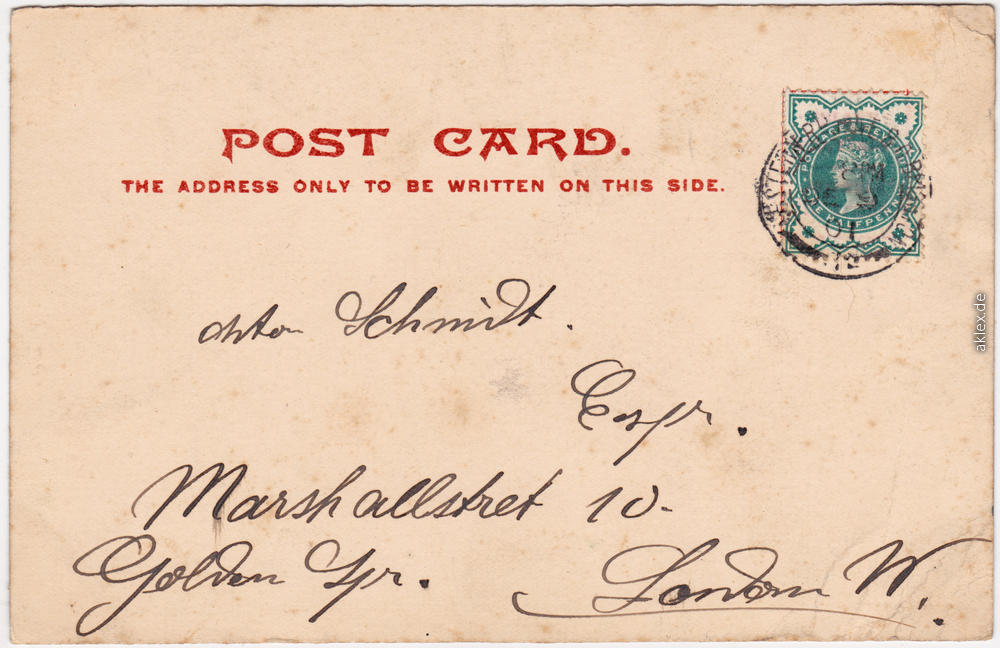 POST CARD.
THE ADDRESS ONLY TO BE WRITTEN ON THIS SIDE.
POSTAGE & REVENUE
ONE HALFPENNY
01
12
Schmidt.
Esqr.
Marshallstret 10.
Golden Sqr.
London W.
aklex.de